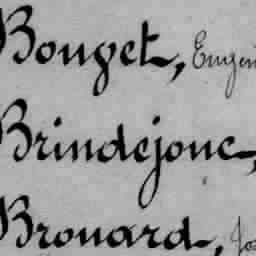 Bouget, Eugèn
Brindejonc,
Brouard, Jos